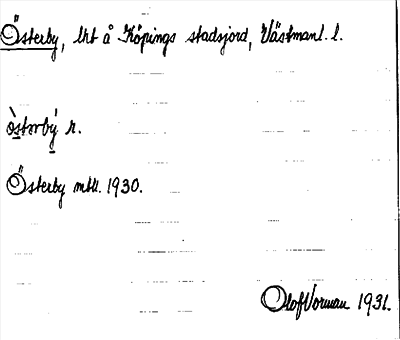 Österby, lht å Köpings stadsjord, Västmanl. l.
òstərbý r.
Österby mtl. 1930.
Olof Vorman 1931.